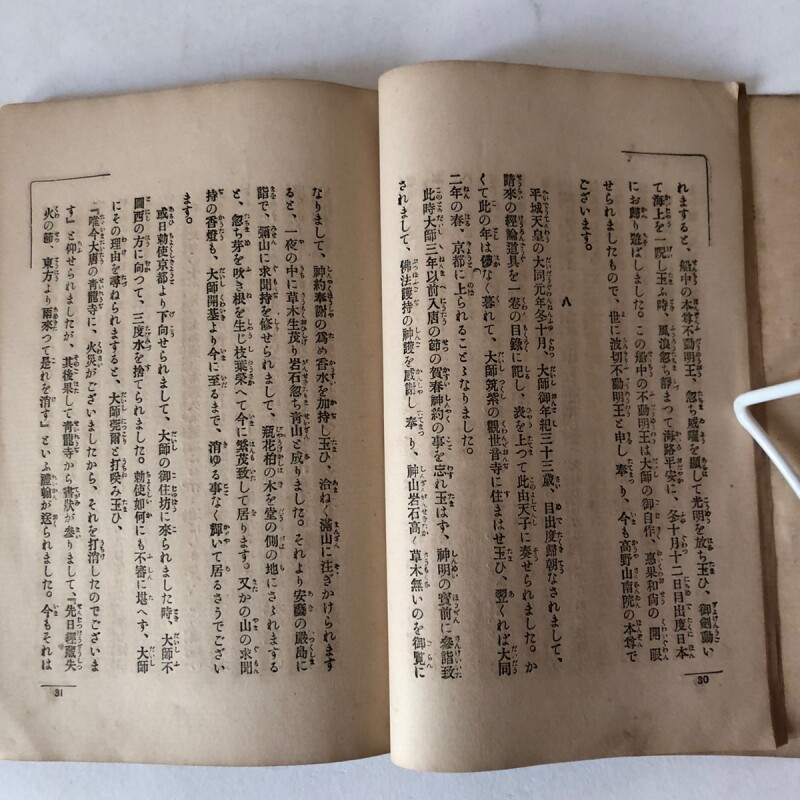 れますると、船中の本尊不動明王、忽ち威曜を顯して光明を放ち玉ひ、御劍動い
て海上を一呪し玉ふ時、風浪忽ち靜まつて海路平安に、冬十月二十二日目出度日本
にお歸り遊ばしました。この船中の不動明王は大師の御自作、惠果和尚の開眼
せられましたもので、世に波切不動明王と申し奉り、今も高野山南院の本尊で
ございます。
八
平城天皇の大同元年冬十月、大師御年紀三十三歳、目出度歸朝なされまして、
請來の經論道具を一卷の目錄に記し、表を上つて此由天子に奏せられました。か
くて此の年は儚なく暮れて、大師筑紫の觀世音寺に住まはせ玉ひ、翌くれば大同
二年の春、京都に上られることゝなりました。
此時大師二年以前入唐の節の賀春神約の事を忘れ玉はず、神明の寶前に參詣致
されまして、佛法護持の神護を感謝し奉り、神山岩石高く草木無いのを御覽に
30
なりまして、神約奉謝の爲め香水を加持し玉ひ、洽ねく滿山に注ぎかけられます
ると、一夜の中に草木生茂り岩石忽ち青山と成りました。それより安藝の嚴島に
詣で、彌山に求聞持を修せられまして、瓶花柏の木を堂の側の地にさゝれまする
と、忽ち芽を吹き根を生じ枝葉榮へて今に繁茂致して居ります。又かの山の求聞
持の香燈も、大師開基より今に至るまで、消ゆる事なく輝いて居るさうでござい
ます。
或日勅使京都より下向せられまして、大師の御住坊に來られました時、大師不
圖西の方に向つて、三度水を捨てられました。勅使如何にも不審に堪へず、大師
にその理由を尋ねられますると、大師莞爾と打咲み玉ひ、
『唯今大唐の青龍寺に、火災がございましたから、それを打消したのでございま
す』と仰せられましたが、其後果して青龍寺から書狀が參りまして、『先日經藏失
火の節、東方より雨來つて是れを消す』といふ禮翰が送られました。今もそれは
31